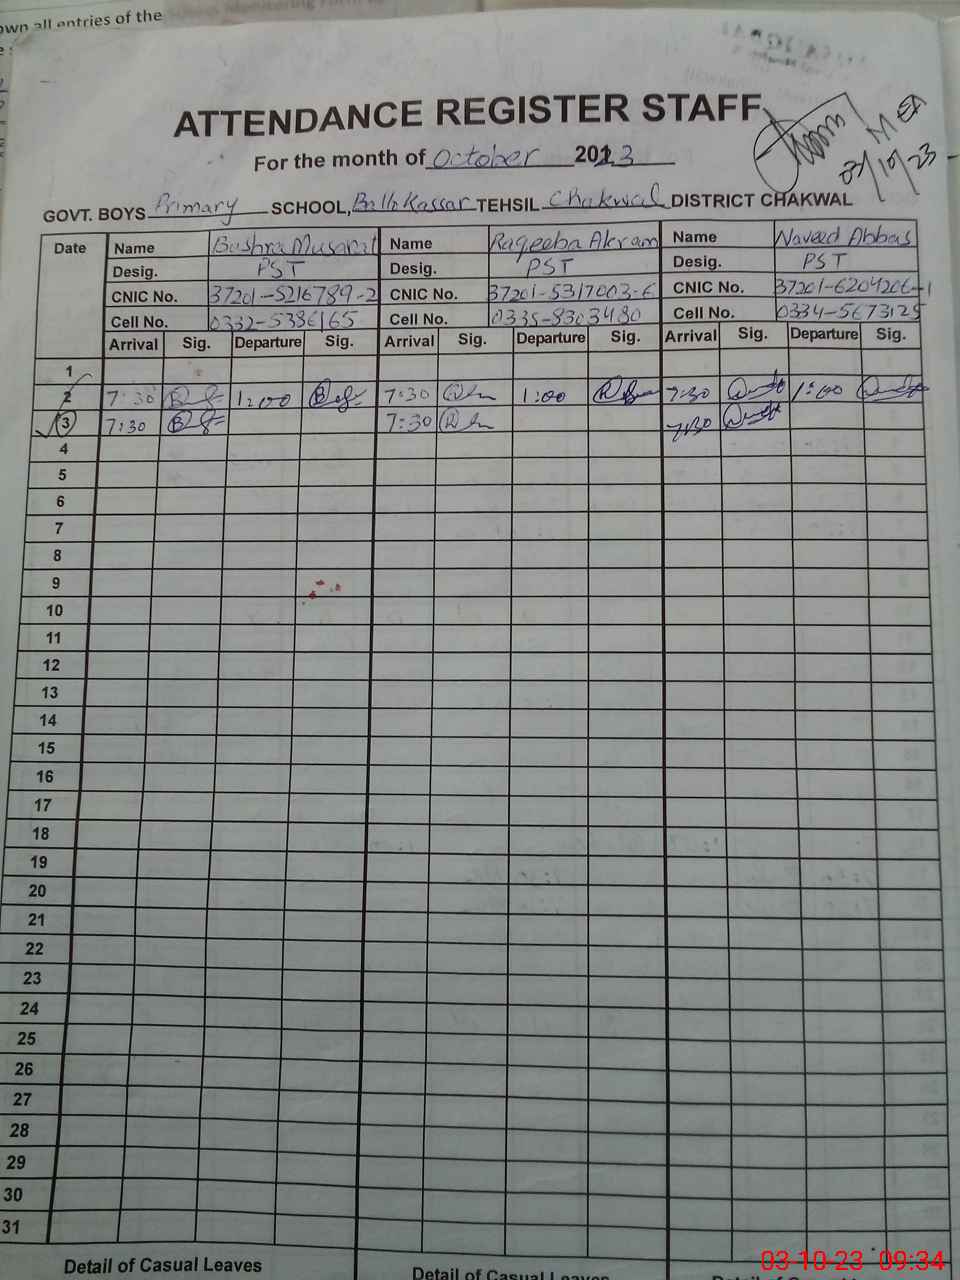 own all entries of the
ATTENDANCE REGISTER STAFF
For the month of October 2023
MEA
03/10/23
GOVT. BOYS Primary SCHOOL, Ballo Kassar TEHSIL Chakwal DISTRICT CHAKWAL
Date Name Bushra Musarat Name Raqeeba Akram Name Naveed Abbas
Desig. PST Desig. PST Desig. PST
CNIC No. 37201-5216789-2 CNIC No. 37201-5317003-6 CNIC No. 37201-6204206-1
Cell No. 0332-5386165 Cell No. 0335-8303480 Cell No. 0334-5673125
Arrival Sig. Departure Sig. Arrival Sig. Departure Sig. Arrival Sig. Departure Sig.
1
2 7:30 1:00 7:30 1:00 7:30 1:00
3 7:30 7:30 7:30
4
5
6
7
8
9
10
11
12
13
14
15
16
17
18
19
20
21
22
23
24
25
26
27
28
29
30
31
Detail of Casual Leaves Detail of Casual Leaves Detail of Casual Leaves
03-10-23 09:34